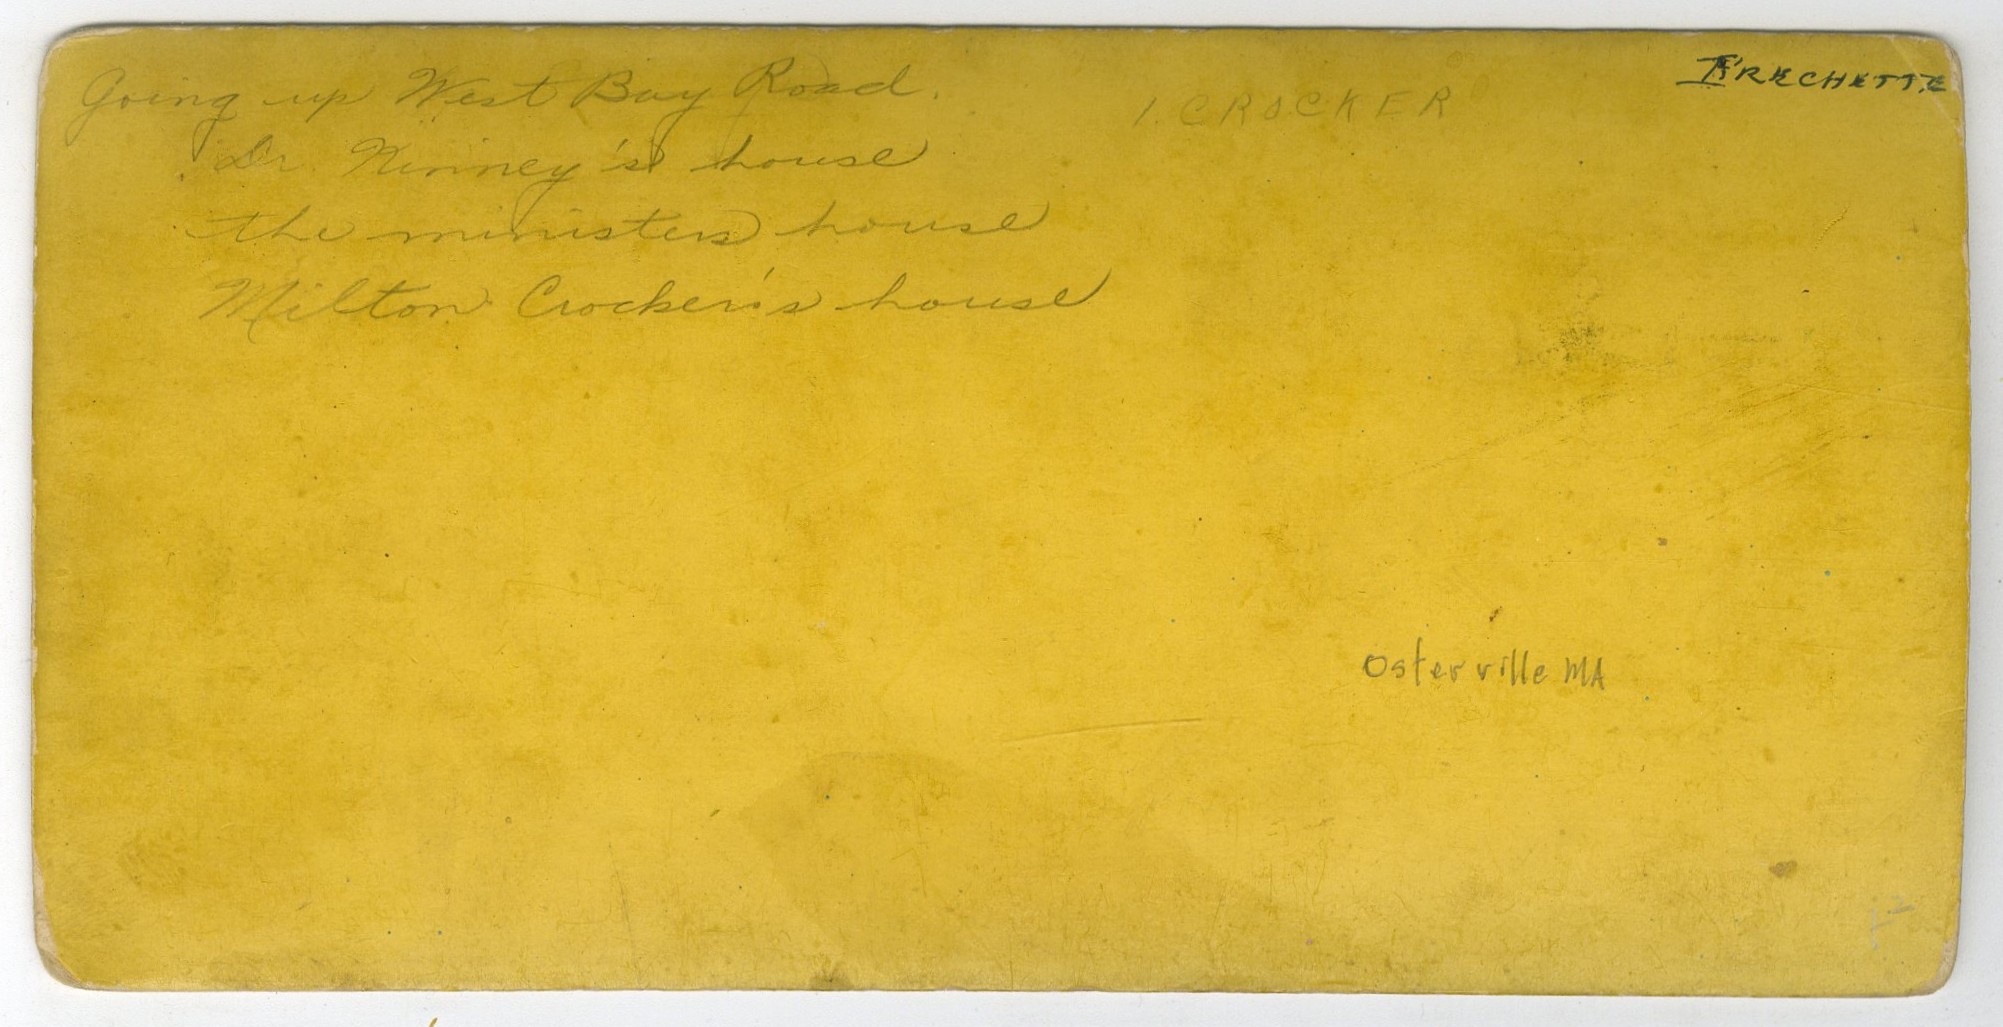 Going up West Bay Road.
Dr. Kinney's house
the ministers house
Milton Crocker's house
1. CROCKER
FRECHETTE
Osterville MA